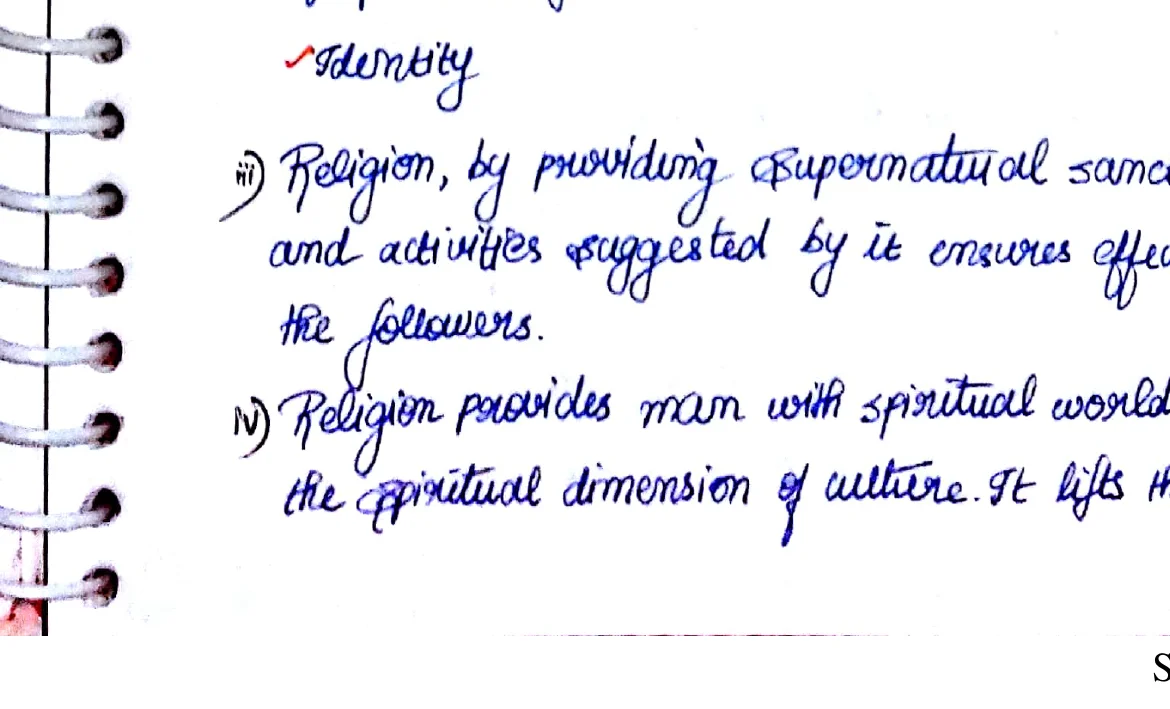 Identity
iii) Religion, by providing supernatural sanc
and activities suggested by it ensures effec
the followers.
iv) Religion provides man with spiritual world
the spiritual dimension of culture. It lifts th
S